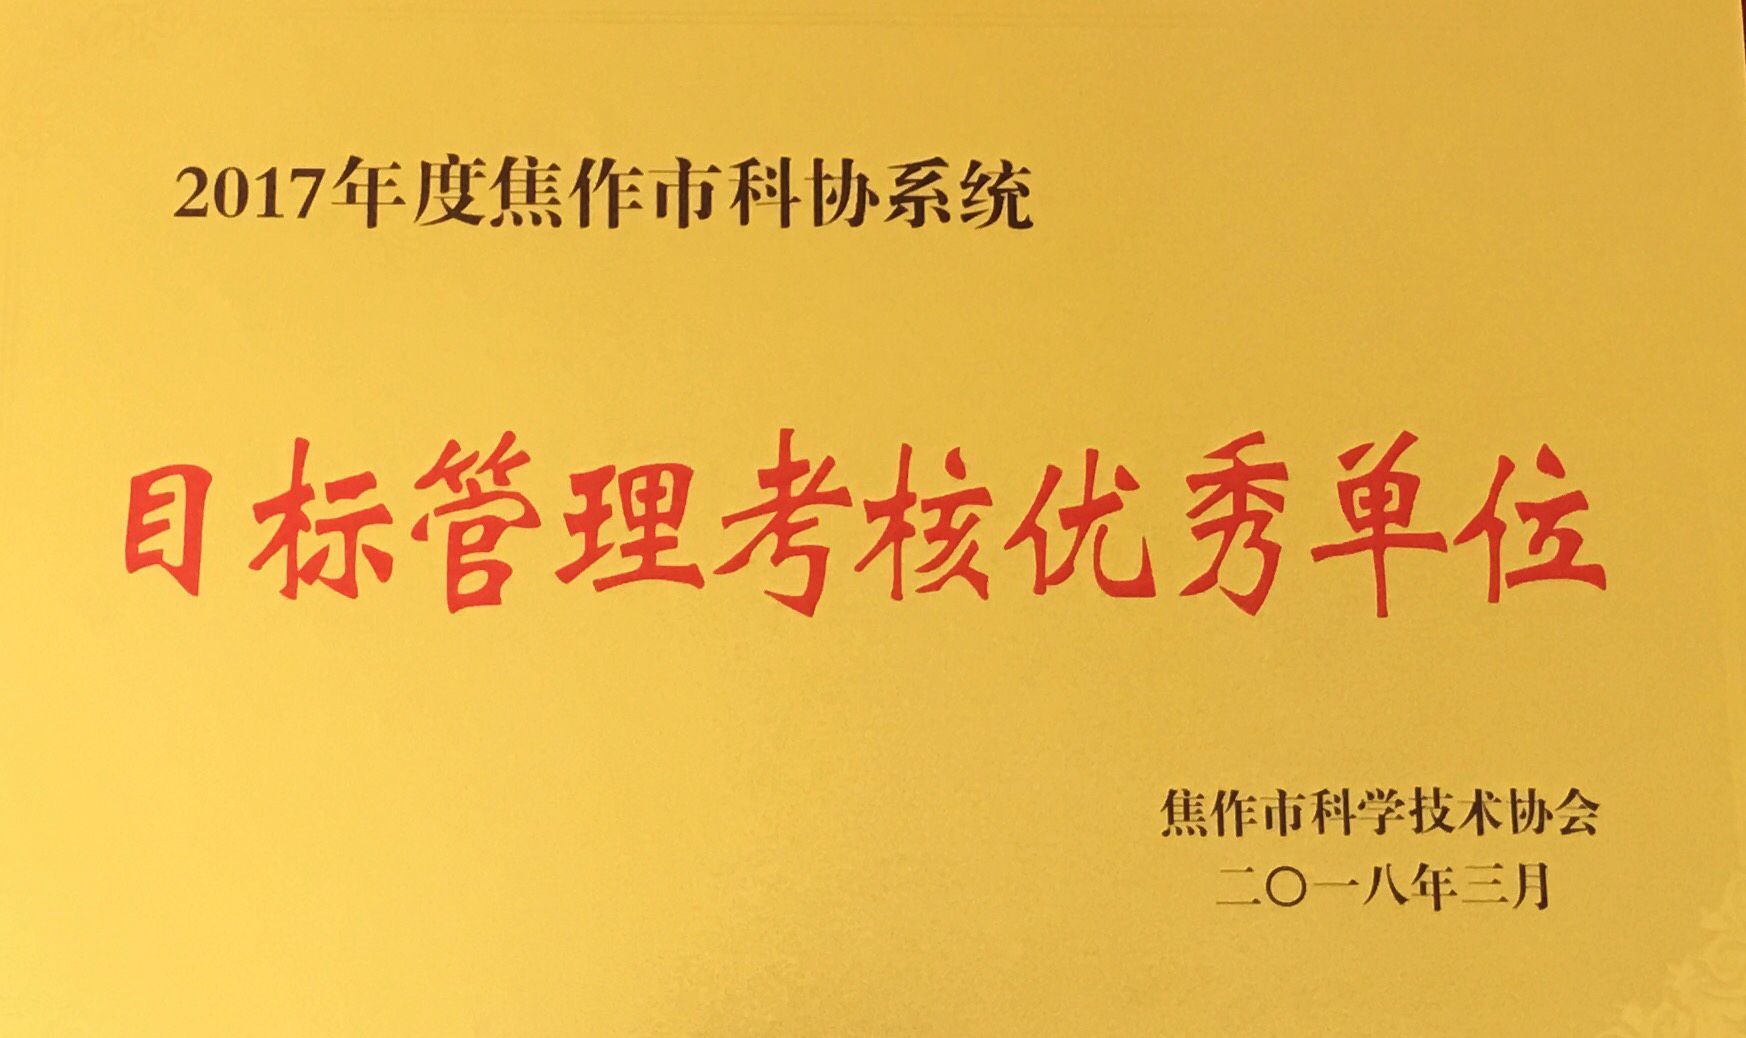 2017年度焦作市科协系统
目标管理考核优秀单位
焦作市科学技术协会
二〇一八年三月